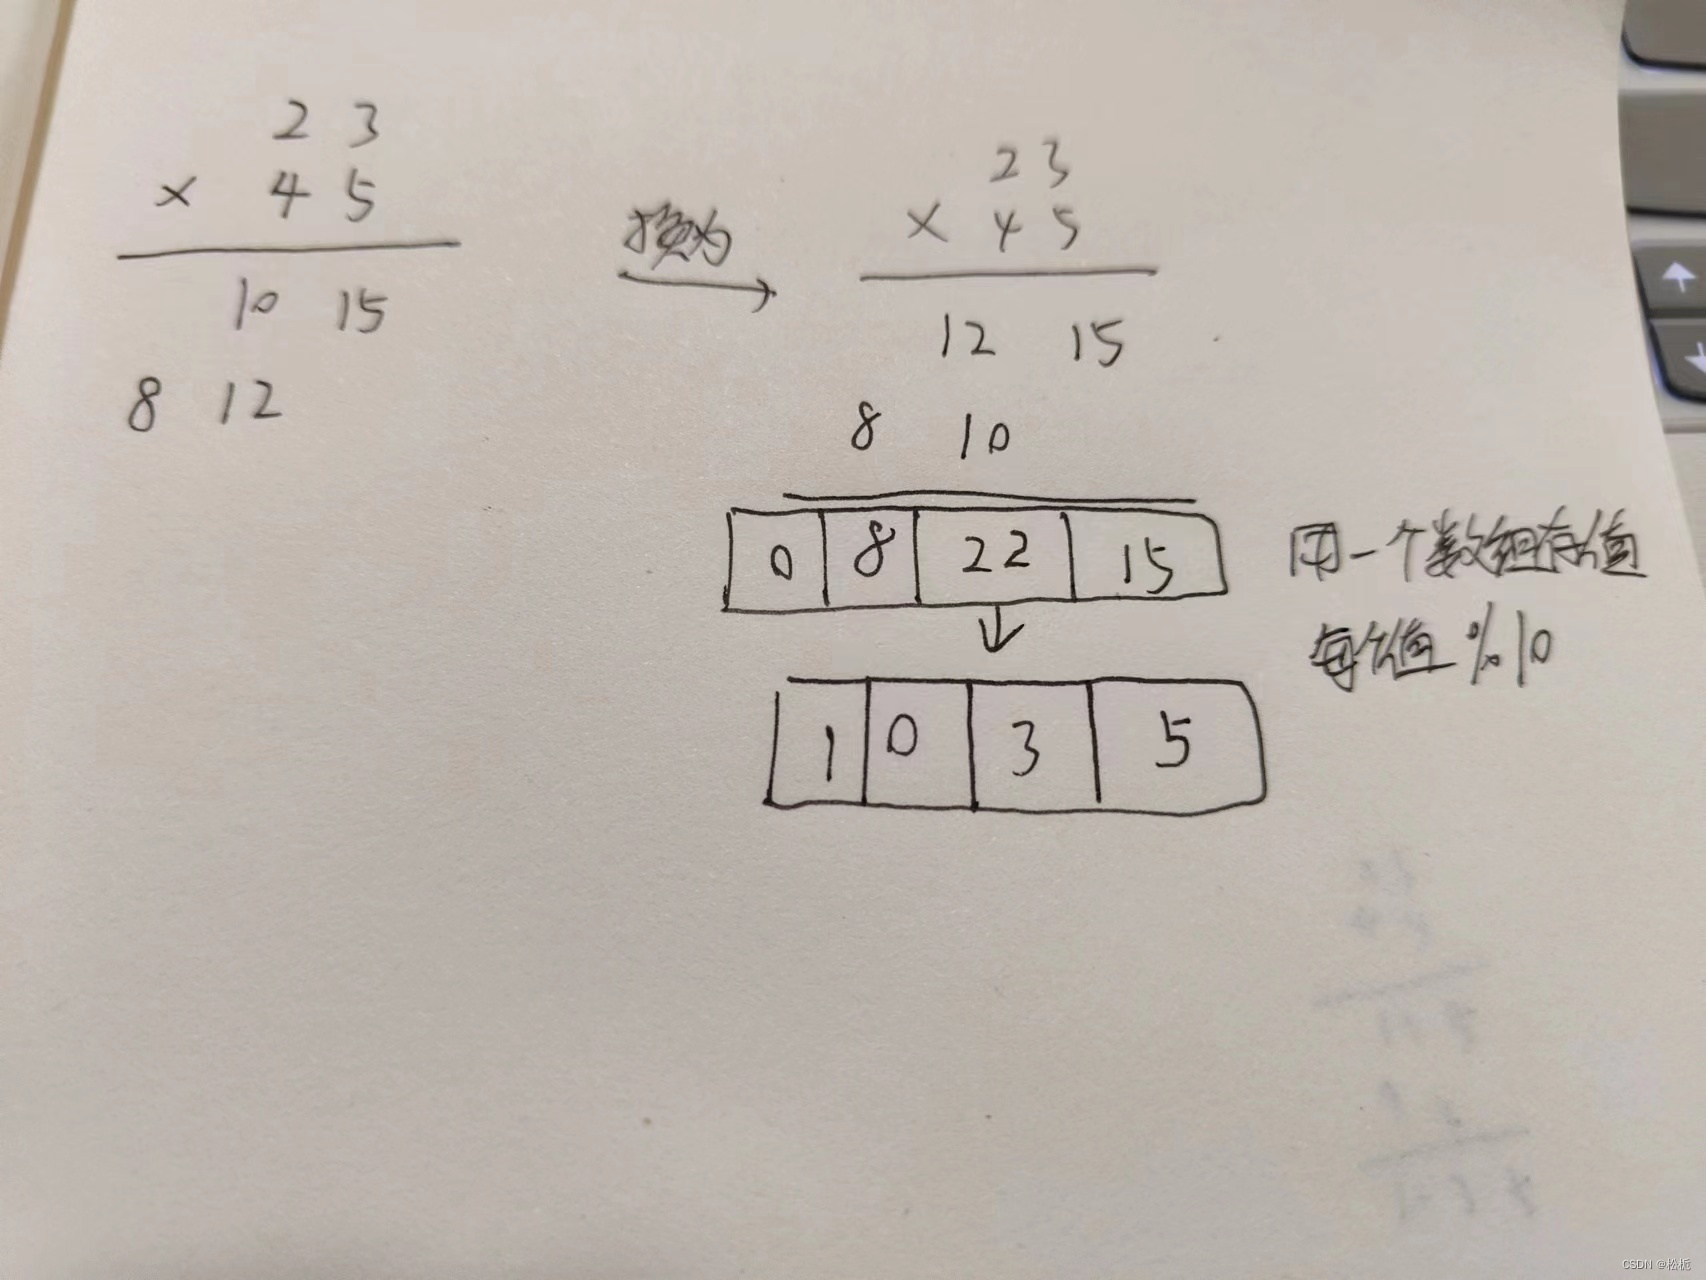 23
× 45
10 15
8 12
换为
23
× 45
12 15
8 10
0 8 22 15
用一个数组存值
每个值%10
1 0 3 5
CSDN @松栀